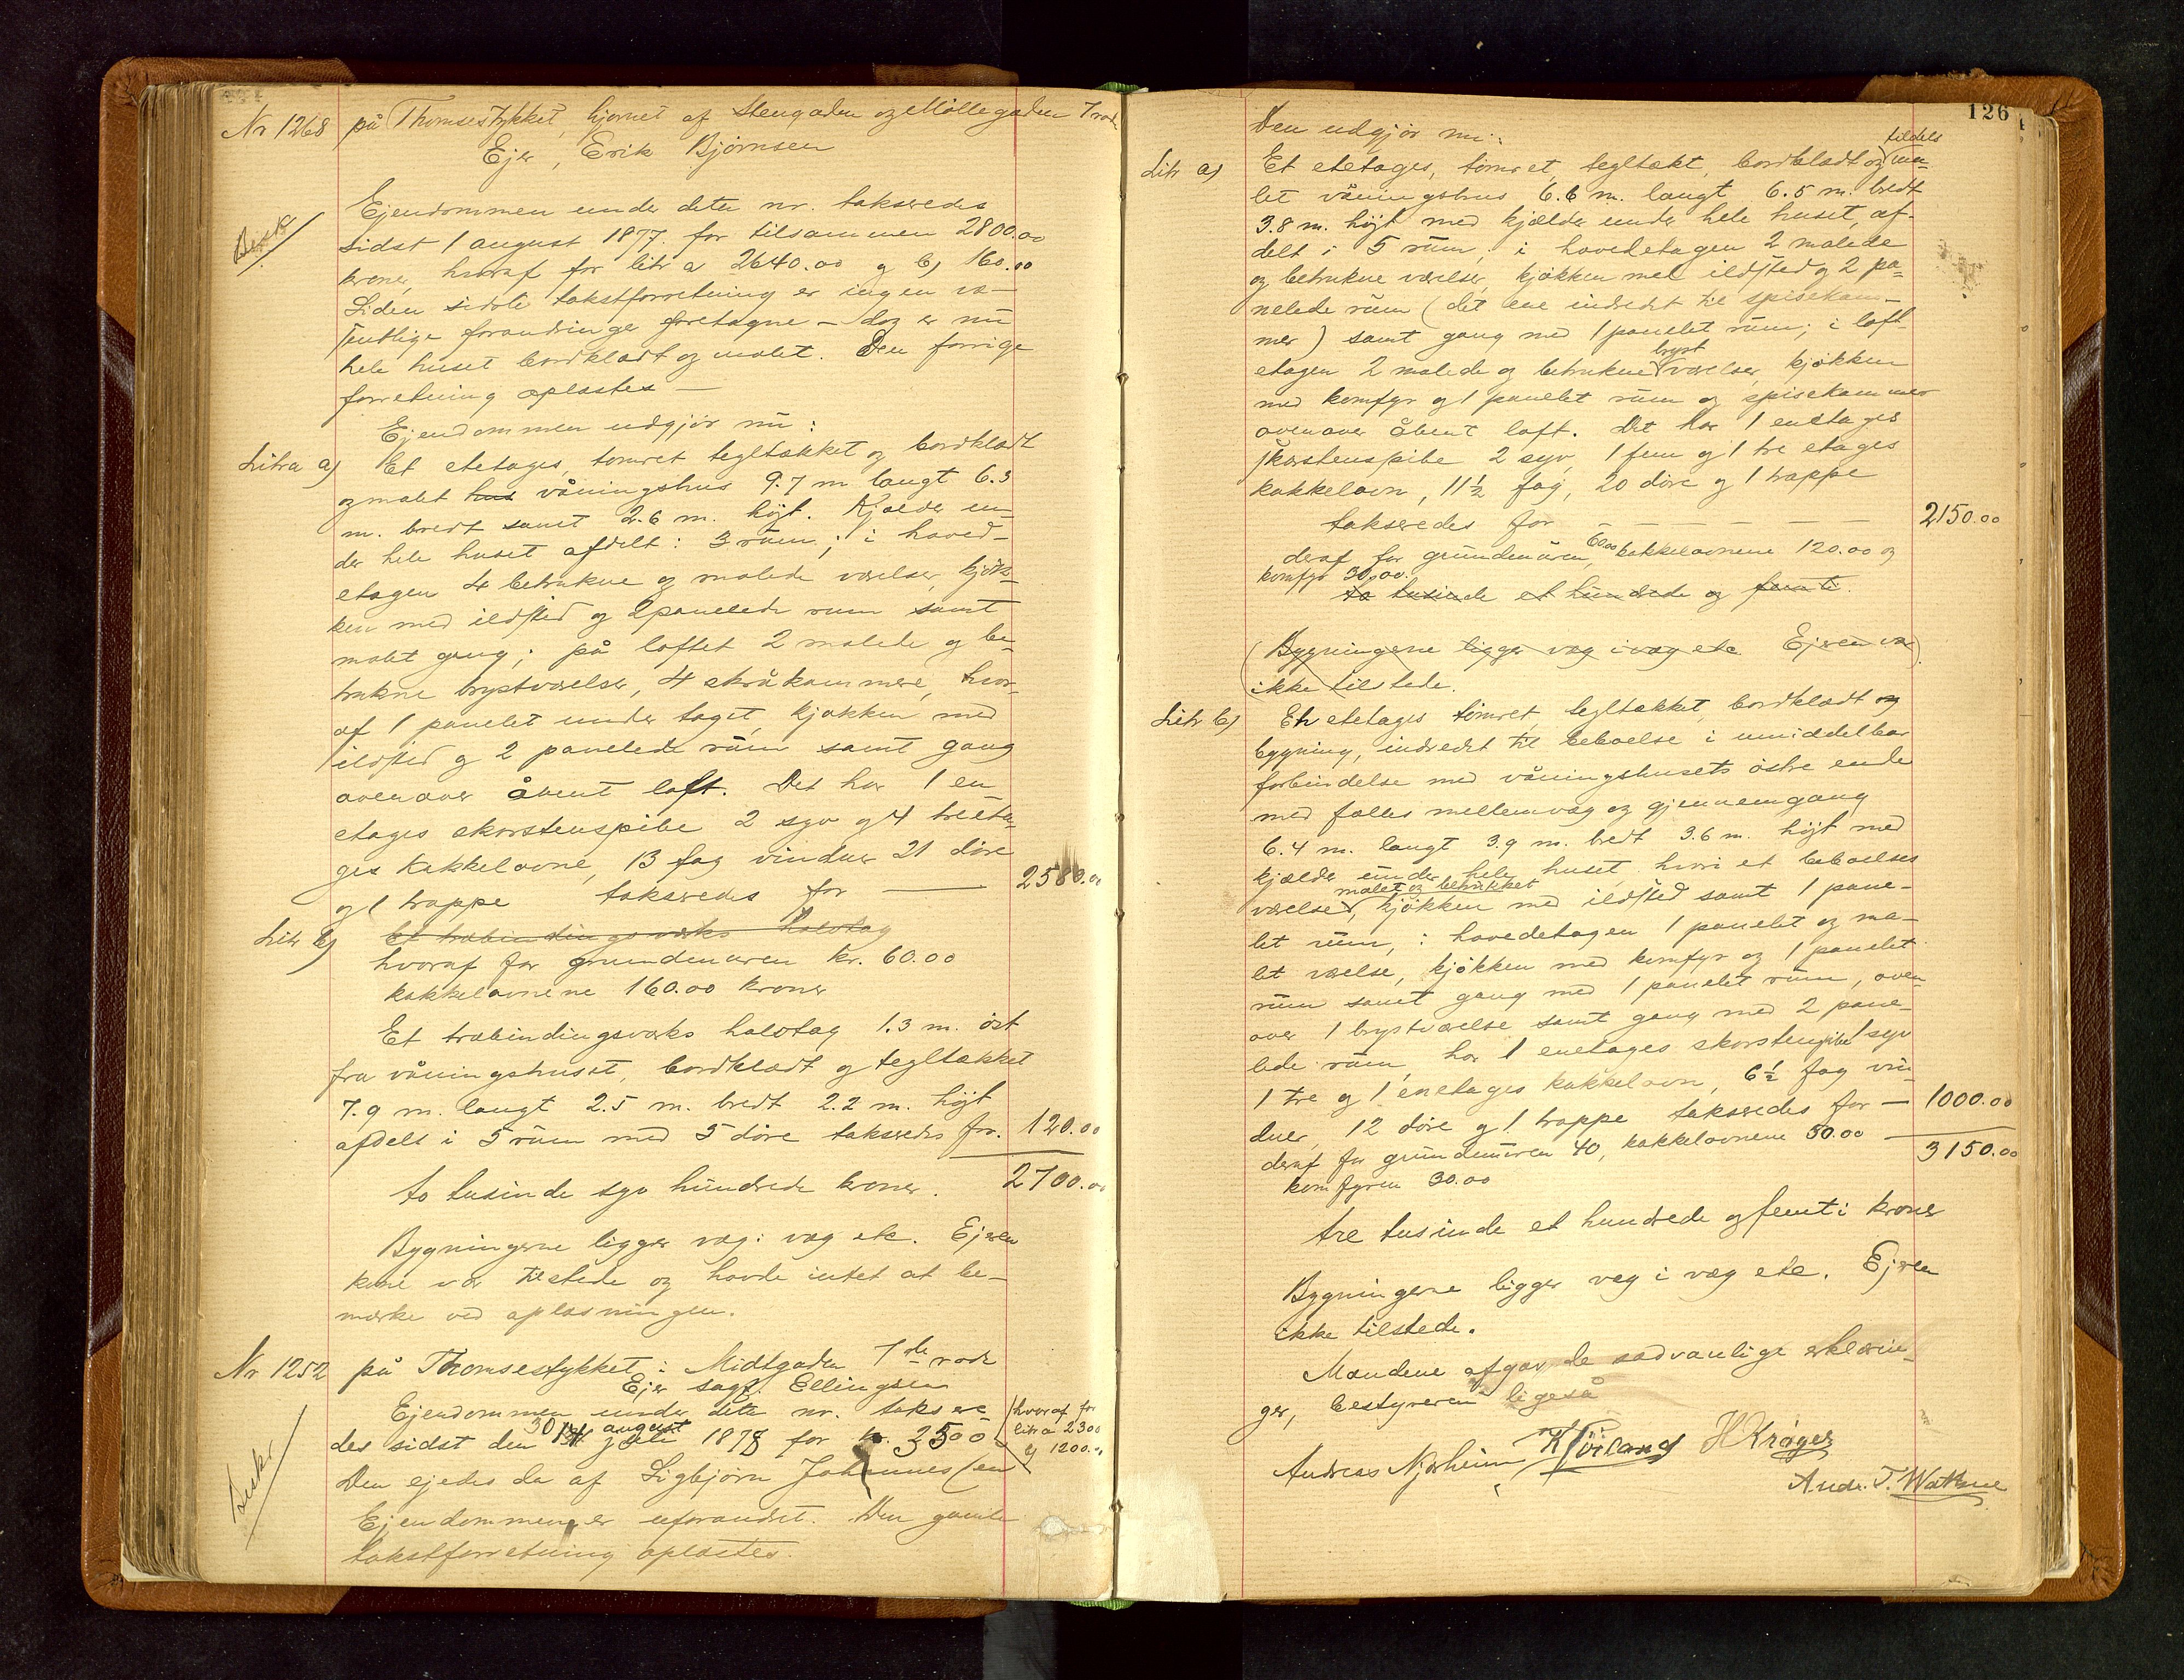 Nr 1268 på Thomsestykket, hjørnet af Stengaden og Møllegaden 7 rode
Ejer, Erik Bjørnsen
Besk
Ejendommen under dette nr. takseredes
sidst 1 august 1877 for tilsammen 2800.00
kroner, hvoraf for litr a 2640.00 og b) 160.00
Siden sidste takstforretning er ingen væ-
sentlige forandringer foretagne – dog er nu
hele huset bordklædt og malet. Den forrige
forretning oplæstes –
Ejendommen udgjør nu:
Litra a) Et etetages, tømret tegltækket og bordklædt
og malet hus våningshus 9.7 m langt 6.3
m. bredt samt 2.6 m. højt. Kjælder un-
der hele huset afdelt i 3 rum; i hoved-
etagen 4 betrukne og malede værelser, kjøk-
ken med ildsted og 2 panelede rum samt
malet gang; på loftet 2 malede og be-
trukne brystværelser, 4 skråkammere, hvor-
af 1 panelet under taget, kjøkken med
ildsted og 2 panelede rum samt gang
ovenover åbent loft. Det har 1 en
etages skorstenspibe 2 syv og 4 treeta-
ges kakkelovne, 13 fag vinduer 21 døre
og 1 trappe takseredes for — 2580.00
Litr b) Et træbindingsværks halvtag
hvoraf for grundmuren kr. 60.00
kakkelovnene 160.00 kroner
Et træbindingsværks halvtag 1.3 m. øst
fra våningshuset, bordklædt og tegltækket
7.9 m. langt 2.5 m. bredt 2.2 m. højt
afdelt i 5 rum med 5 døre takseredes for. 120.00
to tusinde syv hundrede kroner. 2700.00
Bygningerne ligger væg i væg etc. Ejeren
kone var tilstede og havde intet at be-
mærke ved oplæsningen.
Nr 1252 på Thomsestykket i Midtgaden 7de rode
Ejer sagf. Ellingsen
Ejendommen under dette nr. taksere- (hvoraf for
des sidst den 30 august 1878 for kr. 3500 litr a 2300
b) 1200.00
Beskr
Den ejedes da af Sigbjørn Johannessen
Ejendommen er uforandret. Den gamle
takstforretning oplæstes.
126
Den udgjør nu:
tildels
Litr a) Et etetages, tømret, tegltækt, bordklædt og ma-
let våningshus 6.6 m. langt 6.5 m. bredt
3.8 m. højt med kjælder under hele huset, af-
delt i 5 rum, i hovedetagen 2 malede
og betrukne værelser, kjøkken med ildsted og 2 pa-
nelede rum (det ene indredet til spisekam-
mer) samt gang med 1 panelet rum; i loft-
bryst
etagen 2 malede og betrukne værelser, kjøkken
med komfyr og 1 panelet rum og spisekammer
ovenover åbent loft. Det har 1 enetages
skorstenspibe 2 syv, 1 fem og 1 tre etages
kakkelovn, 11½ fag, 20 døre og 1 trappe
takseredes for – – – – – – 2150.00
deraf for grundmuren 60.00 kakkelovnene 120.00 og
komfyr 30.00.
to tusinde et hundrede og femti.
(Bygningerne ligger væg i væg etc Ejeren var)
ikke tilstede.
Litr b) En etetages tømret, tegltækket, bordklædt og
bygning, indredet til beboelse i umiddelbar
forbindelse med våningshusets østre ende
med fælles mellemvæg og gjennemgang
6.4 m. langt 3.9 m. bredt 3.6 m. højt med
kjælder under hele huset hvori et beboelses
malet og betrukket
værelse, kjøkken med ildsted samt 1 pane-
let rum, i hovedetagen 1 panelet og ma-
let værelse, kjøkken med komfyr og 1 panelet
rum samt gang med 1 panelet rum, oven-
over 1 brystværelse samt gang med 2 pane-
lede rum, har 1 enetages skorstenspibe 1 syv
1 tre og 1 enetages kakkelovn, 6½ fag vin-
duer, 12 døre og 1 trappe takseredes for — 1000.00
deraf for grundmuren 40, kakkelovnene 50.00 — 3150.00
komfyren 30.00
tre tusinde et hundrede og femti kroner
Bygningerne ligger væg i væg etc. Ejeren
ikke tilstede.
Mændene afgav de sædvanlige erklærin-
ger, bestyreren ligeså
Andreas Njærheim K Jörland H Krøger
Andr. T. Wathne